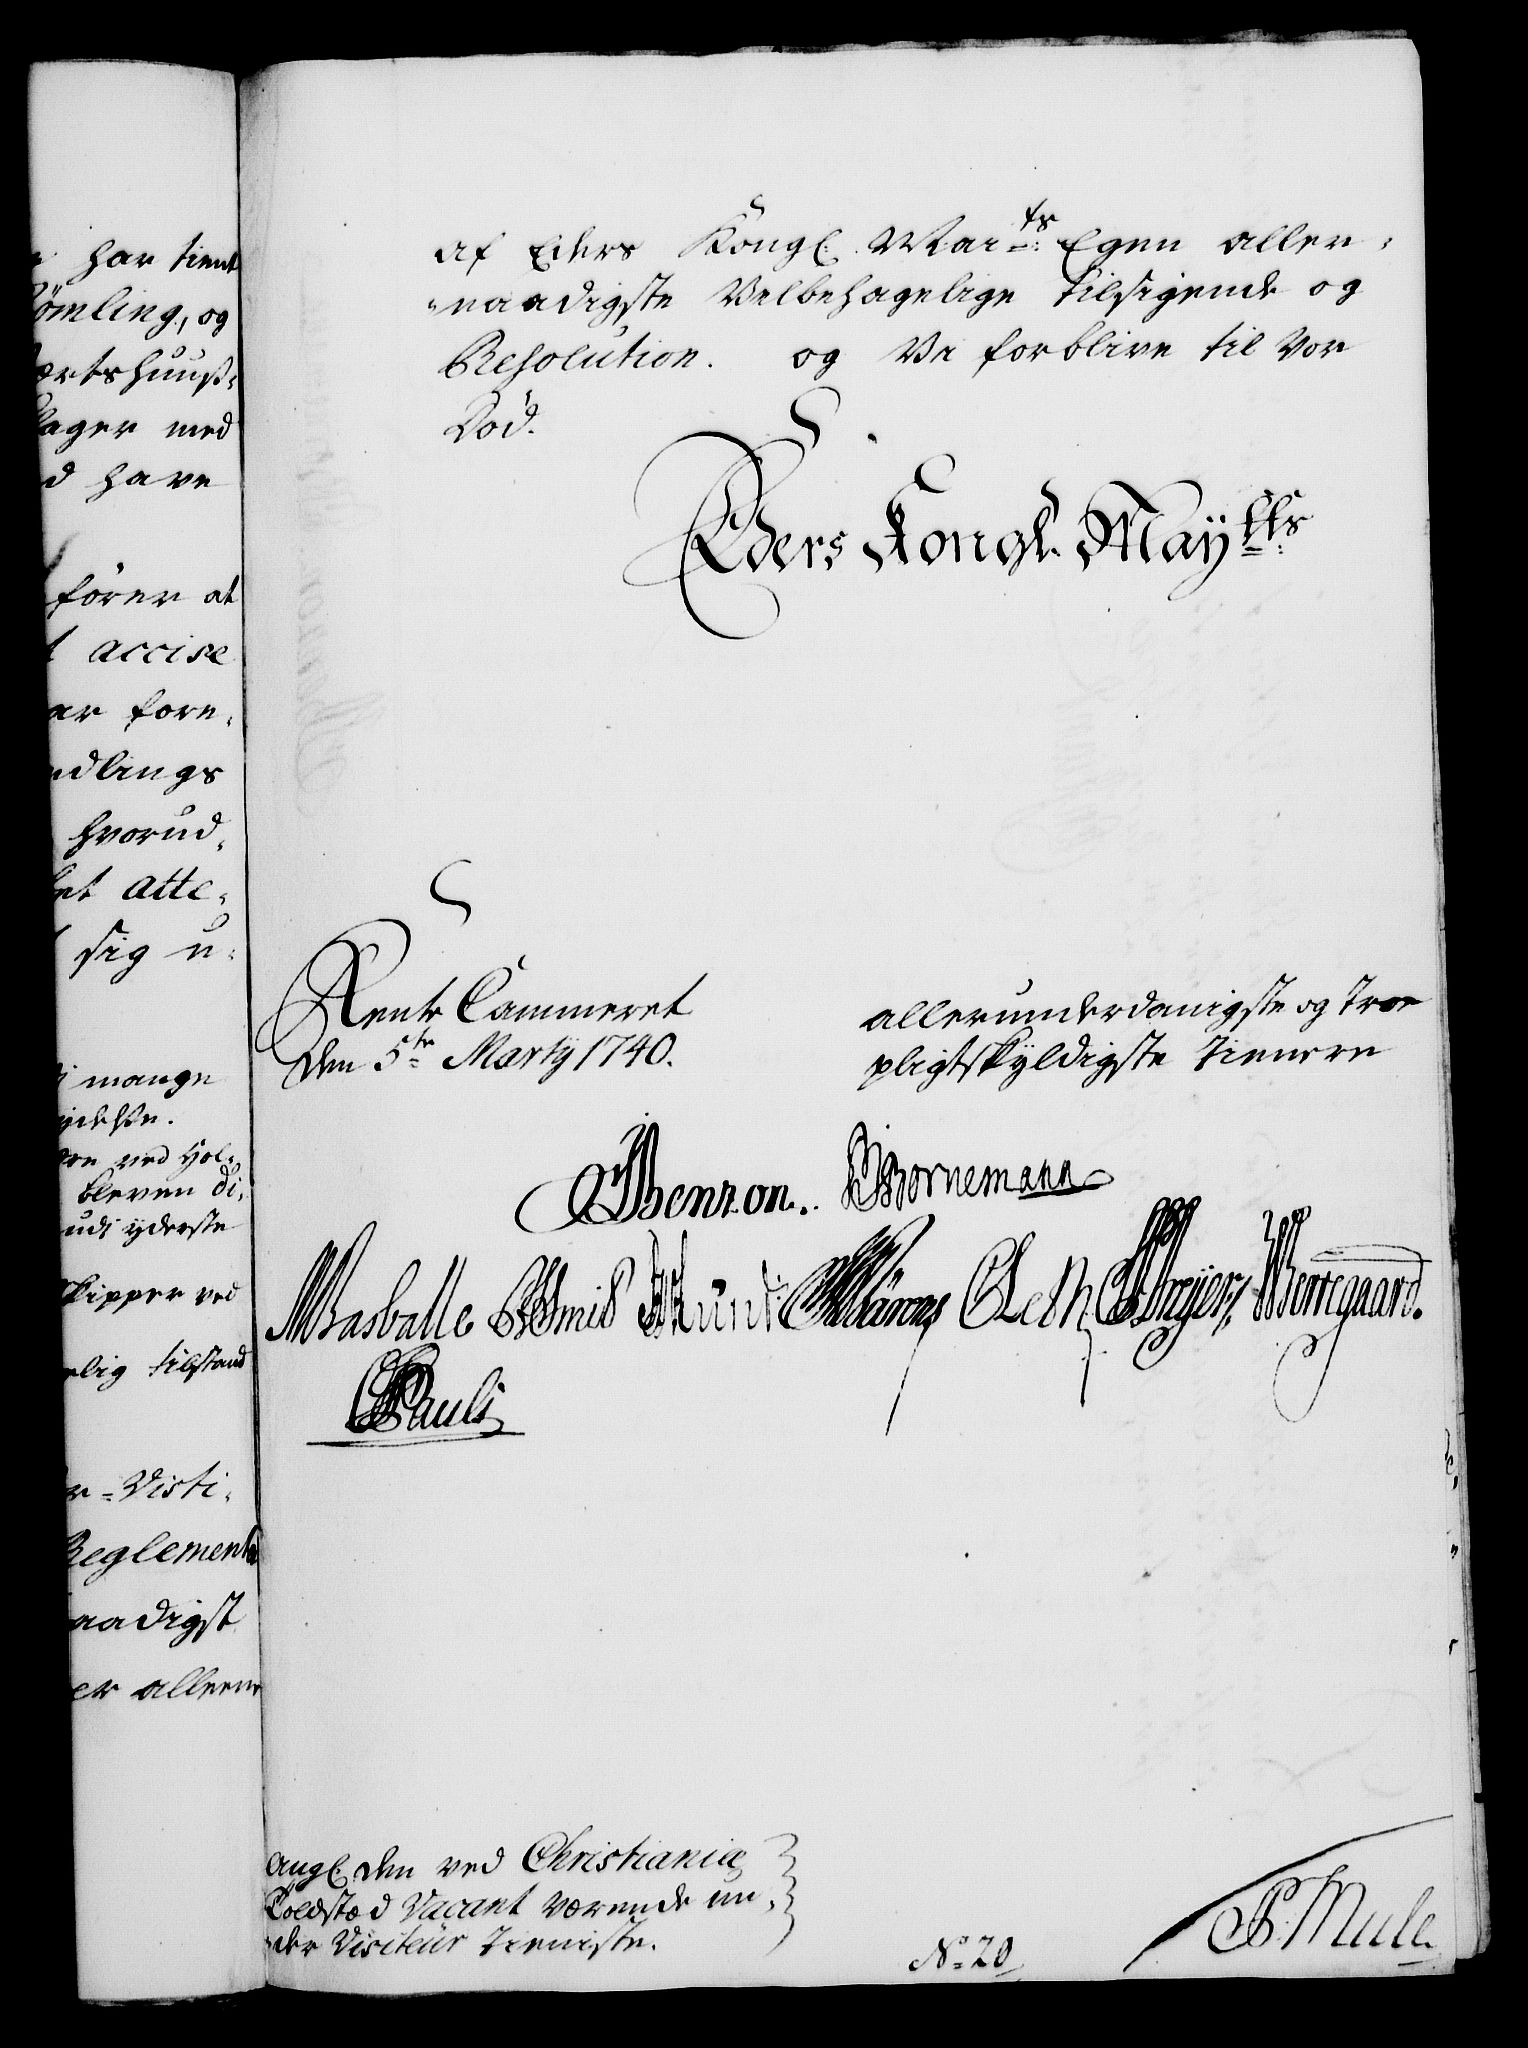 har tient
ömling, og
ertshuuß-
lager med
d have
fører at
accise
ar fore,
ndlings
hvorud,
et atte,
sig u,
mange
ydelse.
ved Hol,
bleven di,
udi yderste
Skipper ved
elig tilstand
r-Visti,
Reglement
aadigst
er alleene
af Eders Kongl. Maits Egen aller,
naadigste Velbehagelige tilsigende og
Resolution. og Vi forblive til Vor
Død.
Eders Kongl. Maytts
Rente Cammeret
den 5te Marty 1740.
allerunderdanigste og Troe
pligtskyldigste Tienere
Benzon. Bornemann
Basballe Smid Leth Dreyer Werregaard.
Pauli
Angl. den ved Christiania
Toldstæd Vacant værende un,
der Visiteur Tieniste.
No 20
P. Mule.